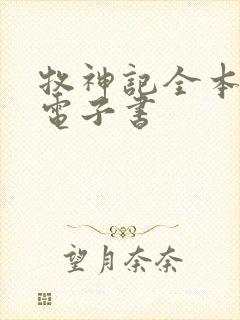 牧神記全本
電子書
望月奈奈